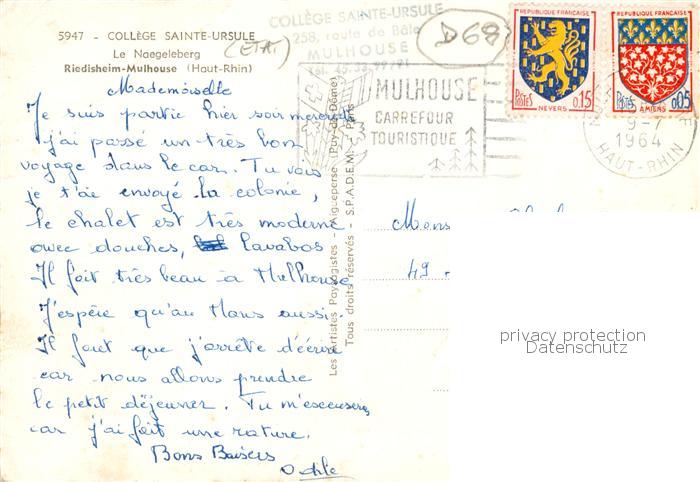 5947 - COLLÈGE SAINTE-URSULE
Le Naegeleberg
Riedisheim-Mulhouse (Haut-Rhin)
(ETAT)
COLLÈGE SAINTE-URSULE
258, route de Bâle
MULHOUSE
D68
MULHOUSE
CARREFOUR
TOURISTIQUE
REPUBLIQUE FRANÇAISE
POSTES 0,15
NEVERS
REPUBLIQUE FRANÇAISE
POSTES 0,05
AMIENS
9-7
1964
HAUT-RHIN
Mademoiselle
Je suis partie hier soir mercredi
j'ai passé un très bon
voyage dans le car. Tu vois
je t'ai envoyé la colonie,
le chalet est très moderne
avec douches, lavabos
Il fait très beau à Mulhouse
J'espère qu'au Mans aussi
Il faut que j'arrête d'écrire
car nous allons prendre
le petit déjeuner. Tu m'excuseras
car j'ai fait une rature.
Bons Baisers
Odile
Les Artistes Paysagistes - Aigueperse (Puy-de-Dôme)
Tous droits réservés - S.P.A.D.E.M. - Paris
Mons
49
privacy protection
Datenschutz